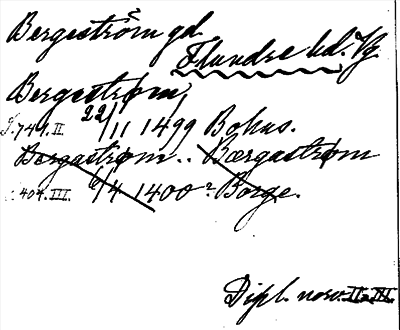 Bergeström gd.
Flundre hd. Vg
Bergestrøm,
S. 741. II 22/11 1499 Bohus.
Bergastrøm.. Bærgastrøm
S. 404. III. 6/4 1400 Borge.
Dipl. norv. II. III.